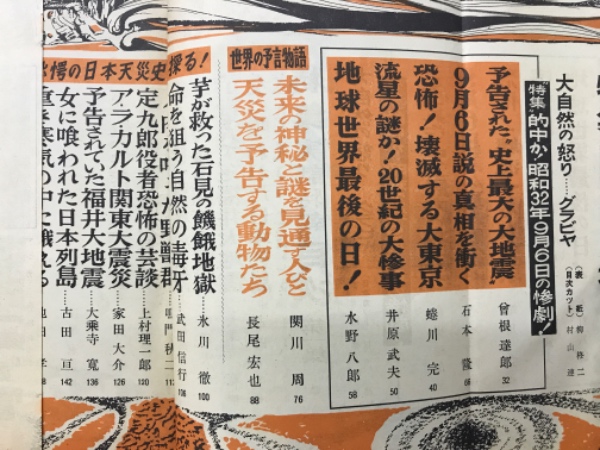 大自然の怒り……グラビヤ
(表紙) 柳柊二
(目次カット) 村山連
特集 的中か!昭和32年9月6日の惨劇!
予告された"史上最大の大地震" 曾根達郎 32
9月6日説の真相を衝く 石本隆 66
恐怖!壊滅する大東京 蜷川完 40
流星の謎か!20世紀の大惨事 井原武夫 50
地球世界最後の日! 水野八郎 58
世界の予言物語
未来の神秘と謎を見通す人びと 関川周 76
天災を予告する動物たち 長尾宏也 88
愕の日本天災史 探る!
芋が救った石見の饑餓地獄…… 氷川徹 100
命を狙う自然の毒牙…… 武田信行 108
野獣群…… 鳴門秋一 112
定九郎役者恐怖の芸談…… 上村理一郎 120
ア・ラ・カルト関東大震災…… 家田大介 126
予告されていた福井大地震…… 大乗寺寛 136
女に喰われた日本列島…… 古田亘 142
寒気の中に